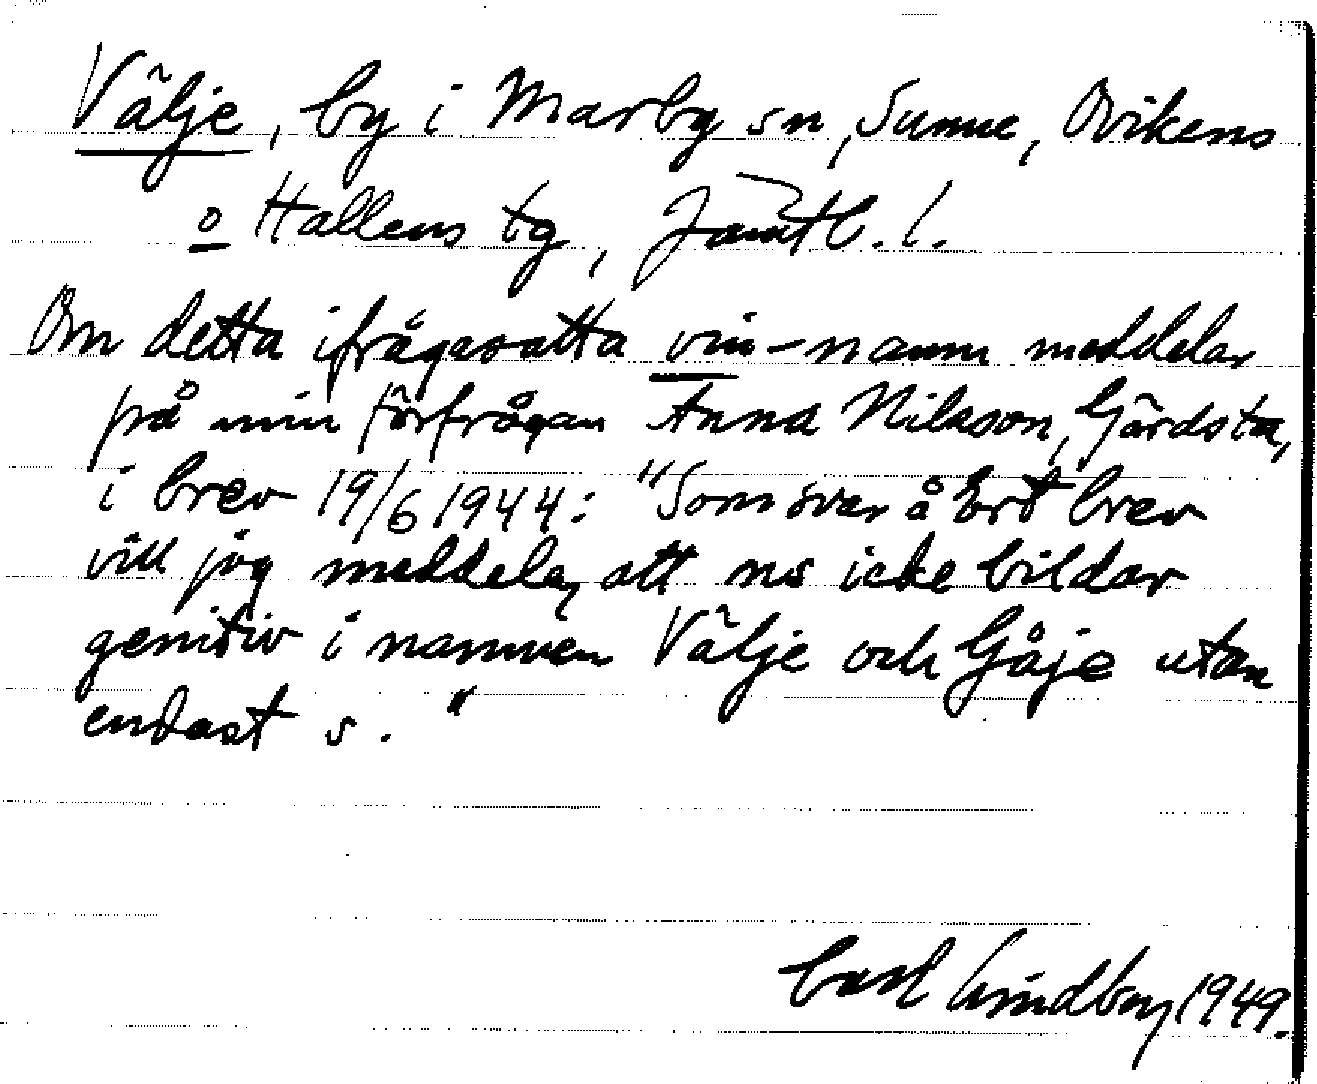 Välje, by i Marby sn, Sunne, Ovikens
o Hallens tg, Jämtl. l.
Om detta ifrågasatta vin-namn meddelar
på min förfrågan Anna Nilsson, Gärdsta,
i brev 19/6 1944: "Som svar å Ert brev
vill jag meddela, att ns icke bildar
genitiv i namnen Välje och Gåje utan
endast s."
Carl Lindberg 1949.